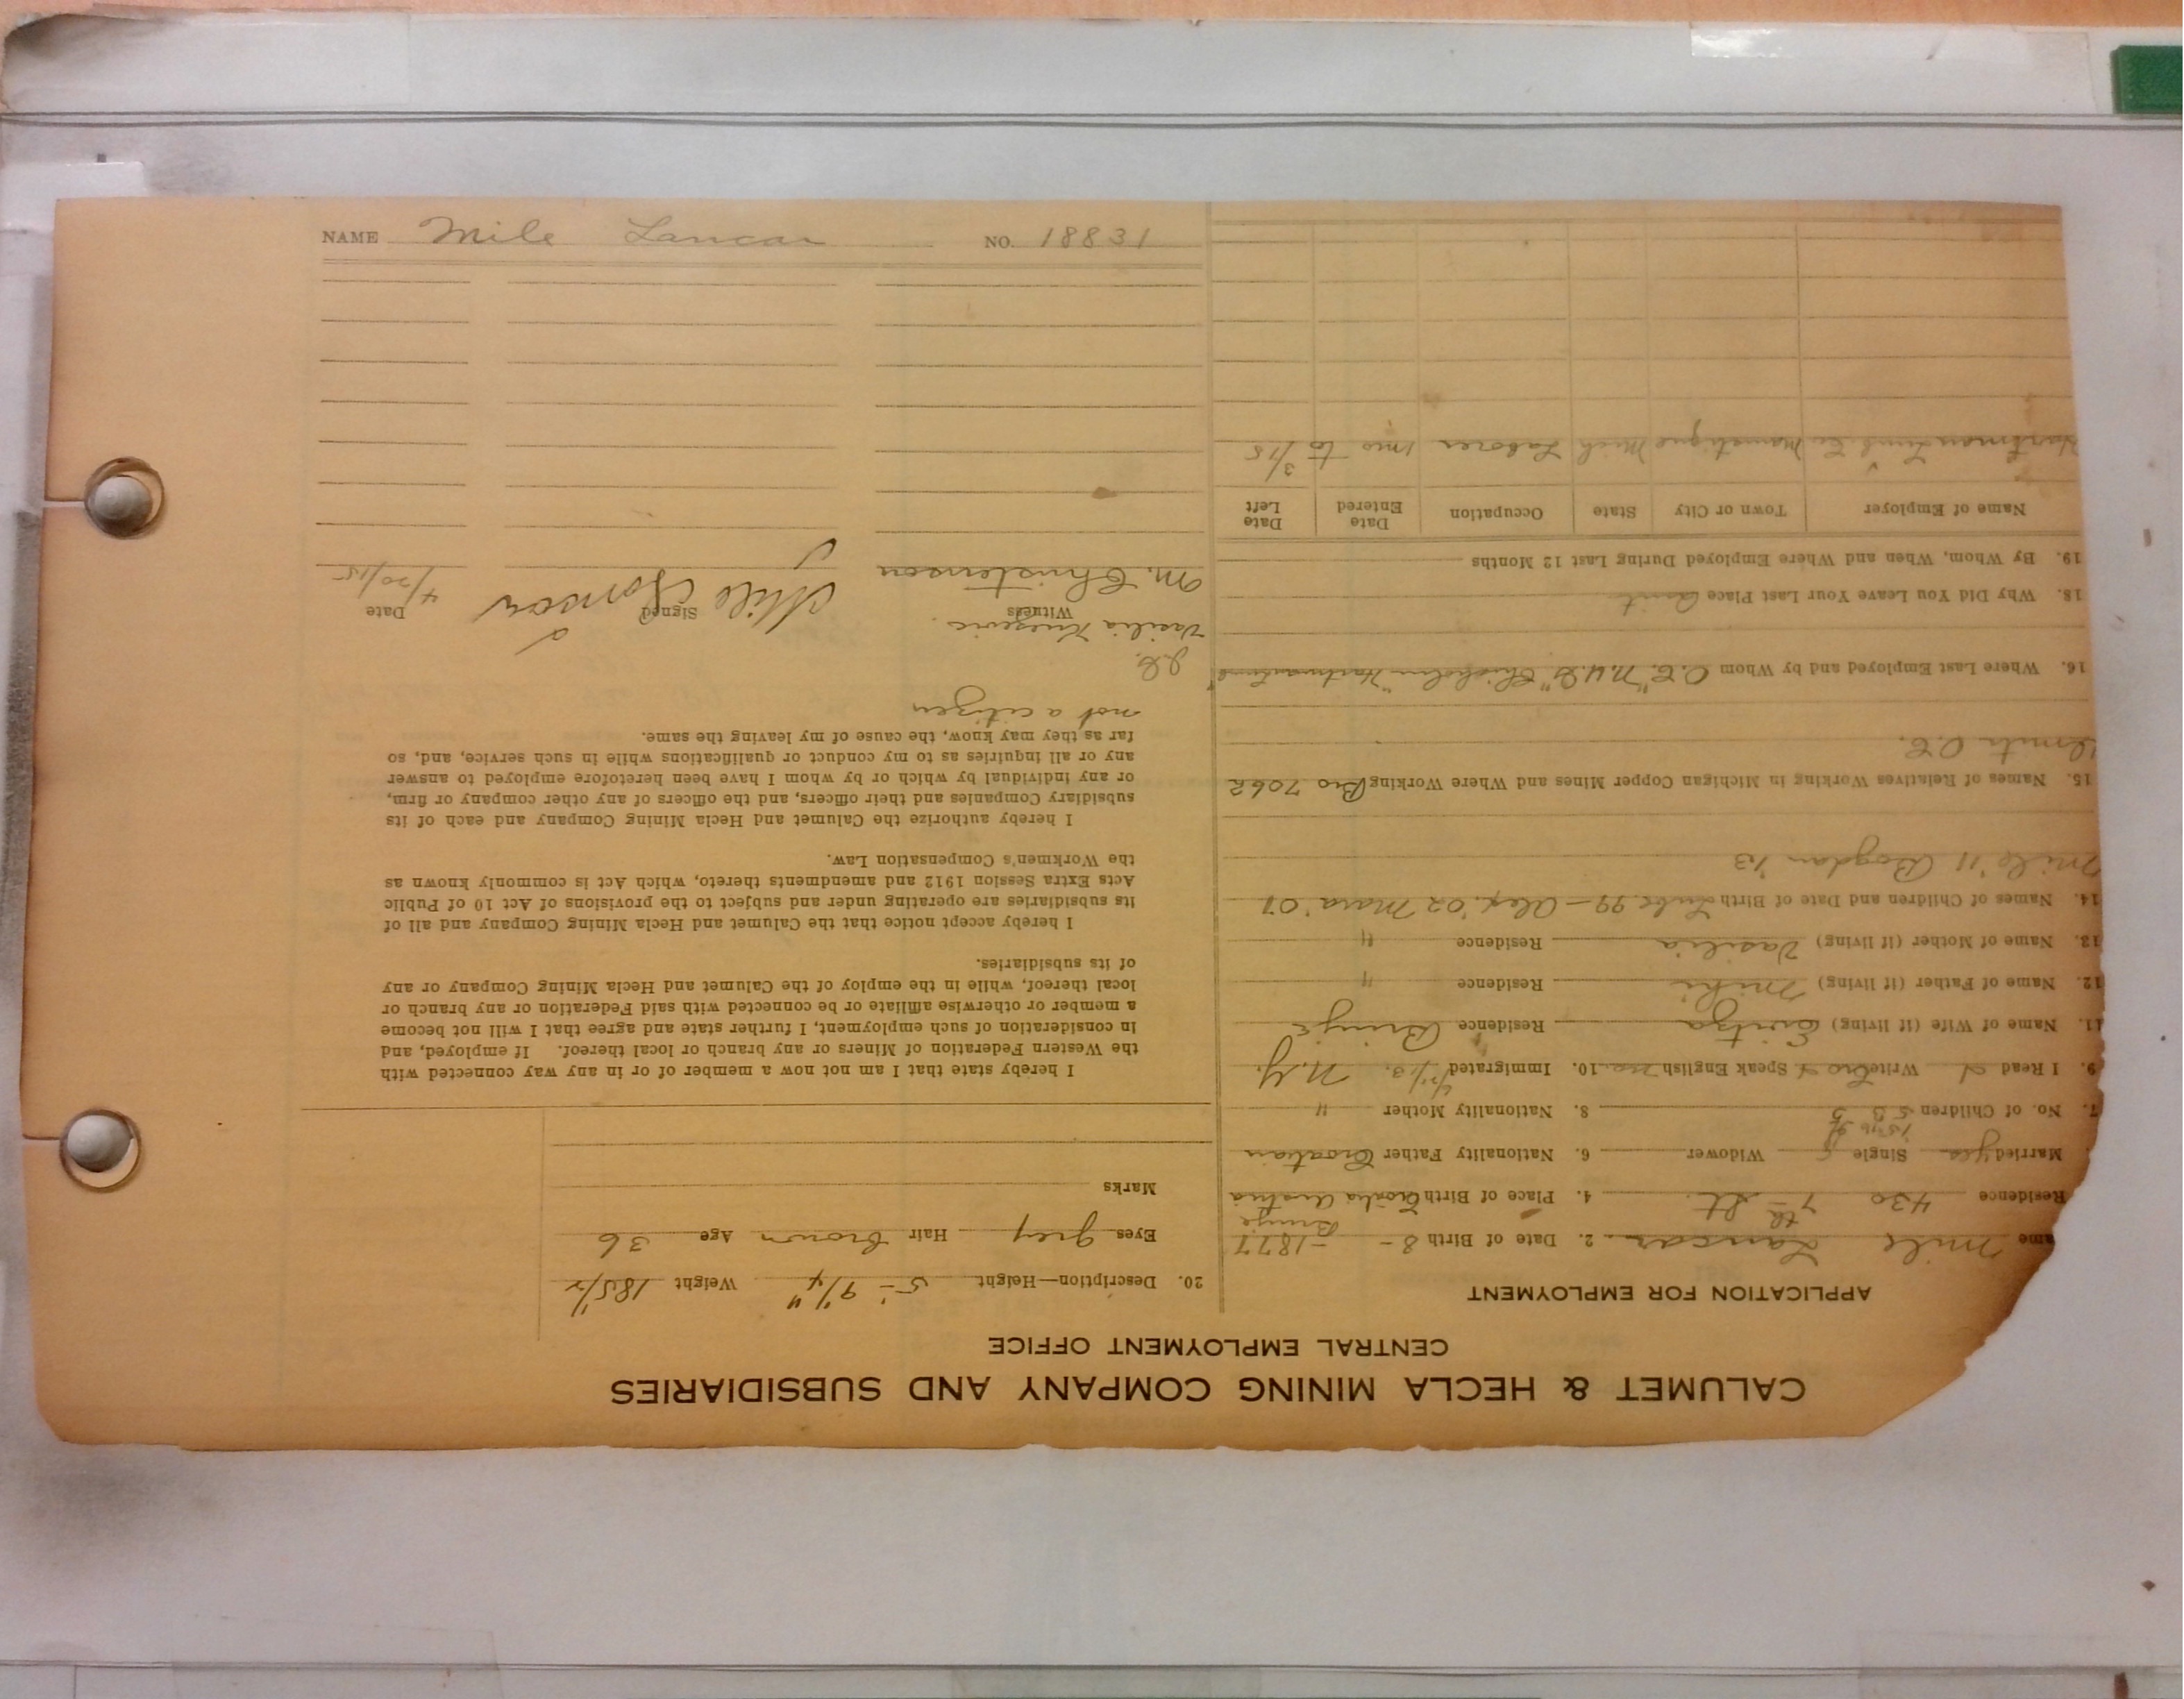 CALUMET & HECLA MINING COMPANY AND SUBSIDIARIES
CENTRAL EMPLOYMENT OFFICE
APPLICATION FOR EMPLOYMENT
ame Mile Lancar 2. Date of Birth 8 - -1877
Brinje
Residence 430 7th St. 4. Place of Birth Croatia Austria
Married yes Single Widower 6. Nationality Father Croatian
7. No. of Children 5 8. Nationality Mother "
9. I Read Write Cro Speak English no 10. Immigrated N.Y.
11. Name of Wife (if living) Residence Brinje
12. Name of Father (if living) Residence "
13. Name of Mother (if living) Vasilia Residence "
14. Names of Children and Date of Birth 99 - Alex. '02 Mara '07
Mile '11 Bogdan '13
15. Names of Relatives Working in Michigan Copper Mines and Where Working Bro 7062
O.C.
16. Where Last Employed and by Whom
18. Why Did You Leave Your Last Place Quit
19. By Whom, When and Where Employed During Last 12 Months
Name of Employer Town or City State Occupation Date Entered Date Left
Hartman Lumb Co Manistique Mich Laborer 1 mo to 3/15
20. Description—Height 5' - 9 1/4" Weight 185 1/2
Eyes grey Hair brown Age 36
Marks
I hereby state that I am not now a member of or in any way connected with
the Western Federation of Miners or any branch or local thereof. If employed, and
in consideration of such employment, I further state and agree that I will not become
a member or otherwise affiliate or be connected with said Federation or any branch or
local thereof, while in the employ of the Calumet and Hecla Mining Company or any
of its subsidiaries.
I hereby accept notice that the Calumet and Hecla Mining Company and all of
its subsidiaries are operating under and subject to the provisions of Act 10 of Public
Acts Extra Session 1912 and amendments thereto, which Act is commonly known as
the Workmen's Compensation Law.
I hereby authorize the Calumet and Hecla Mining Company and each of its
subsidiary Companies and their officers, and the officers of any other company or firm,
or any individual by which or by whom I have been heretofore employed to answer
any or all inquiries as to my conduct or qualifications while in such service, and, so
far as they may know, the cause of my leaving the same.
not a citizen
Vasilia
Witness Signed Date
M. Christenson Mile 4/20/15
NAME Mile Lancar NO. 18831